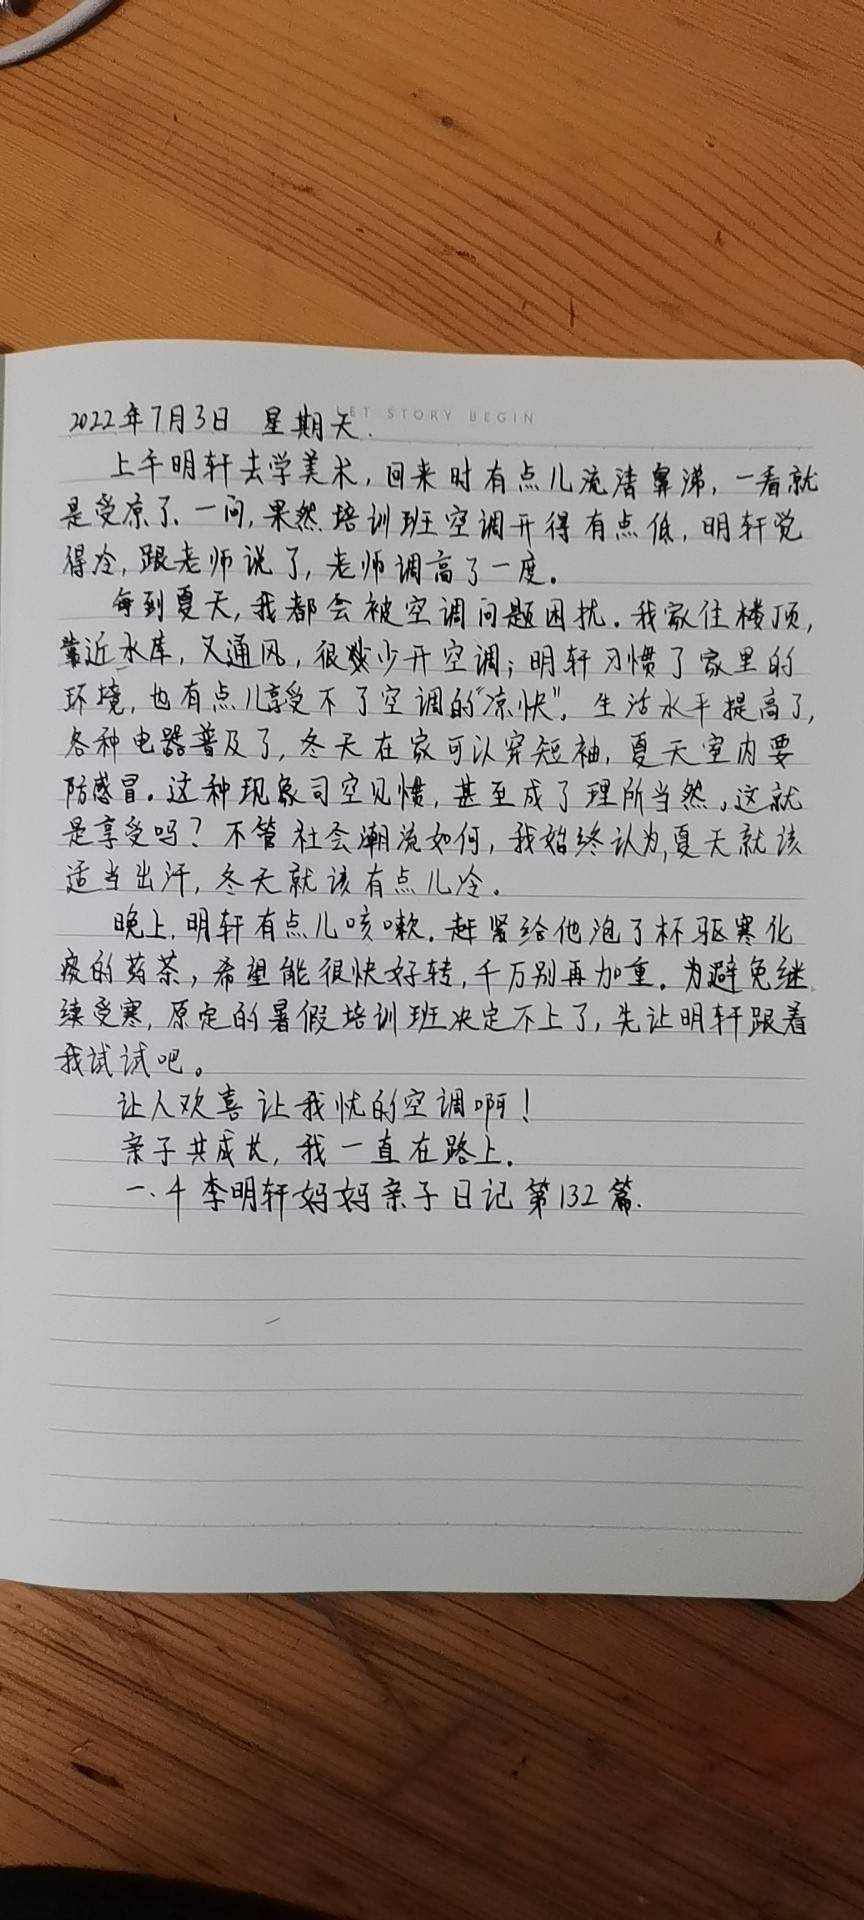 LET STORY BEGIN
2022年7月3日 星期天.
上午明轩去学美术,回来时有点儿流清鼻涕,一看就
是受凉了.一问,果然培训班空调开得有点低,明轩觉
得冷,跟老师说了,老师调高了一度。
每到夏天,我都会被空调问题困扰。我家住楼顶,
靠近水库,又通风,很少开空调;明轩习惯了家里的
环境,也有点儿享受不了空调的"凉快"。生活水平提高了,
各种电器普及了,冬天在家可以穿短袖,夏天室内要
防感冒。这种现象司空见惯,甚至成了理所当然。这就
是享受吗?不管社会潮流如何,我始终认为,夏天就该
适当出汗,冬天就该有点儿冷。
晚上,明轩有点儿咳嗽.赶紧给他泡了杯驱寒化
痰的药茶,希望能很快好转,千万别再加重。为避免继
续受寒,原定的暑假培训班决定不上了,先让明轩跟着
我试试吧。
让人欢喜让我忧的空调啊!
亲子共成长,我一直在路上.
一.4 李明轩妈妈亲子日记第132篇.